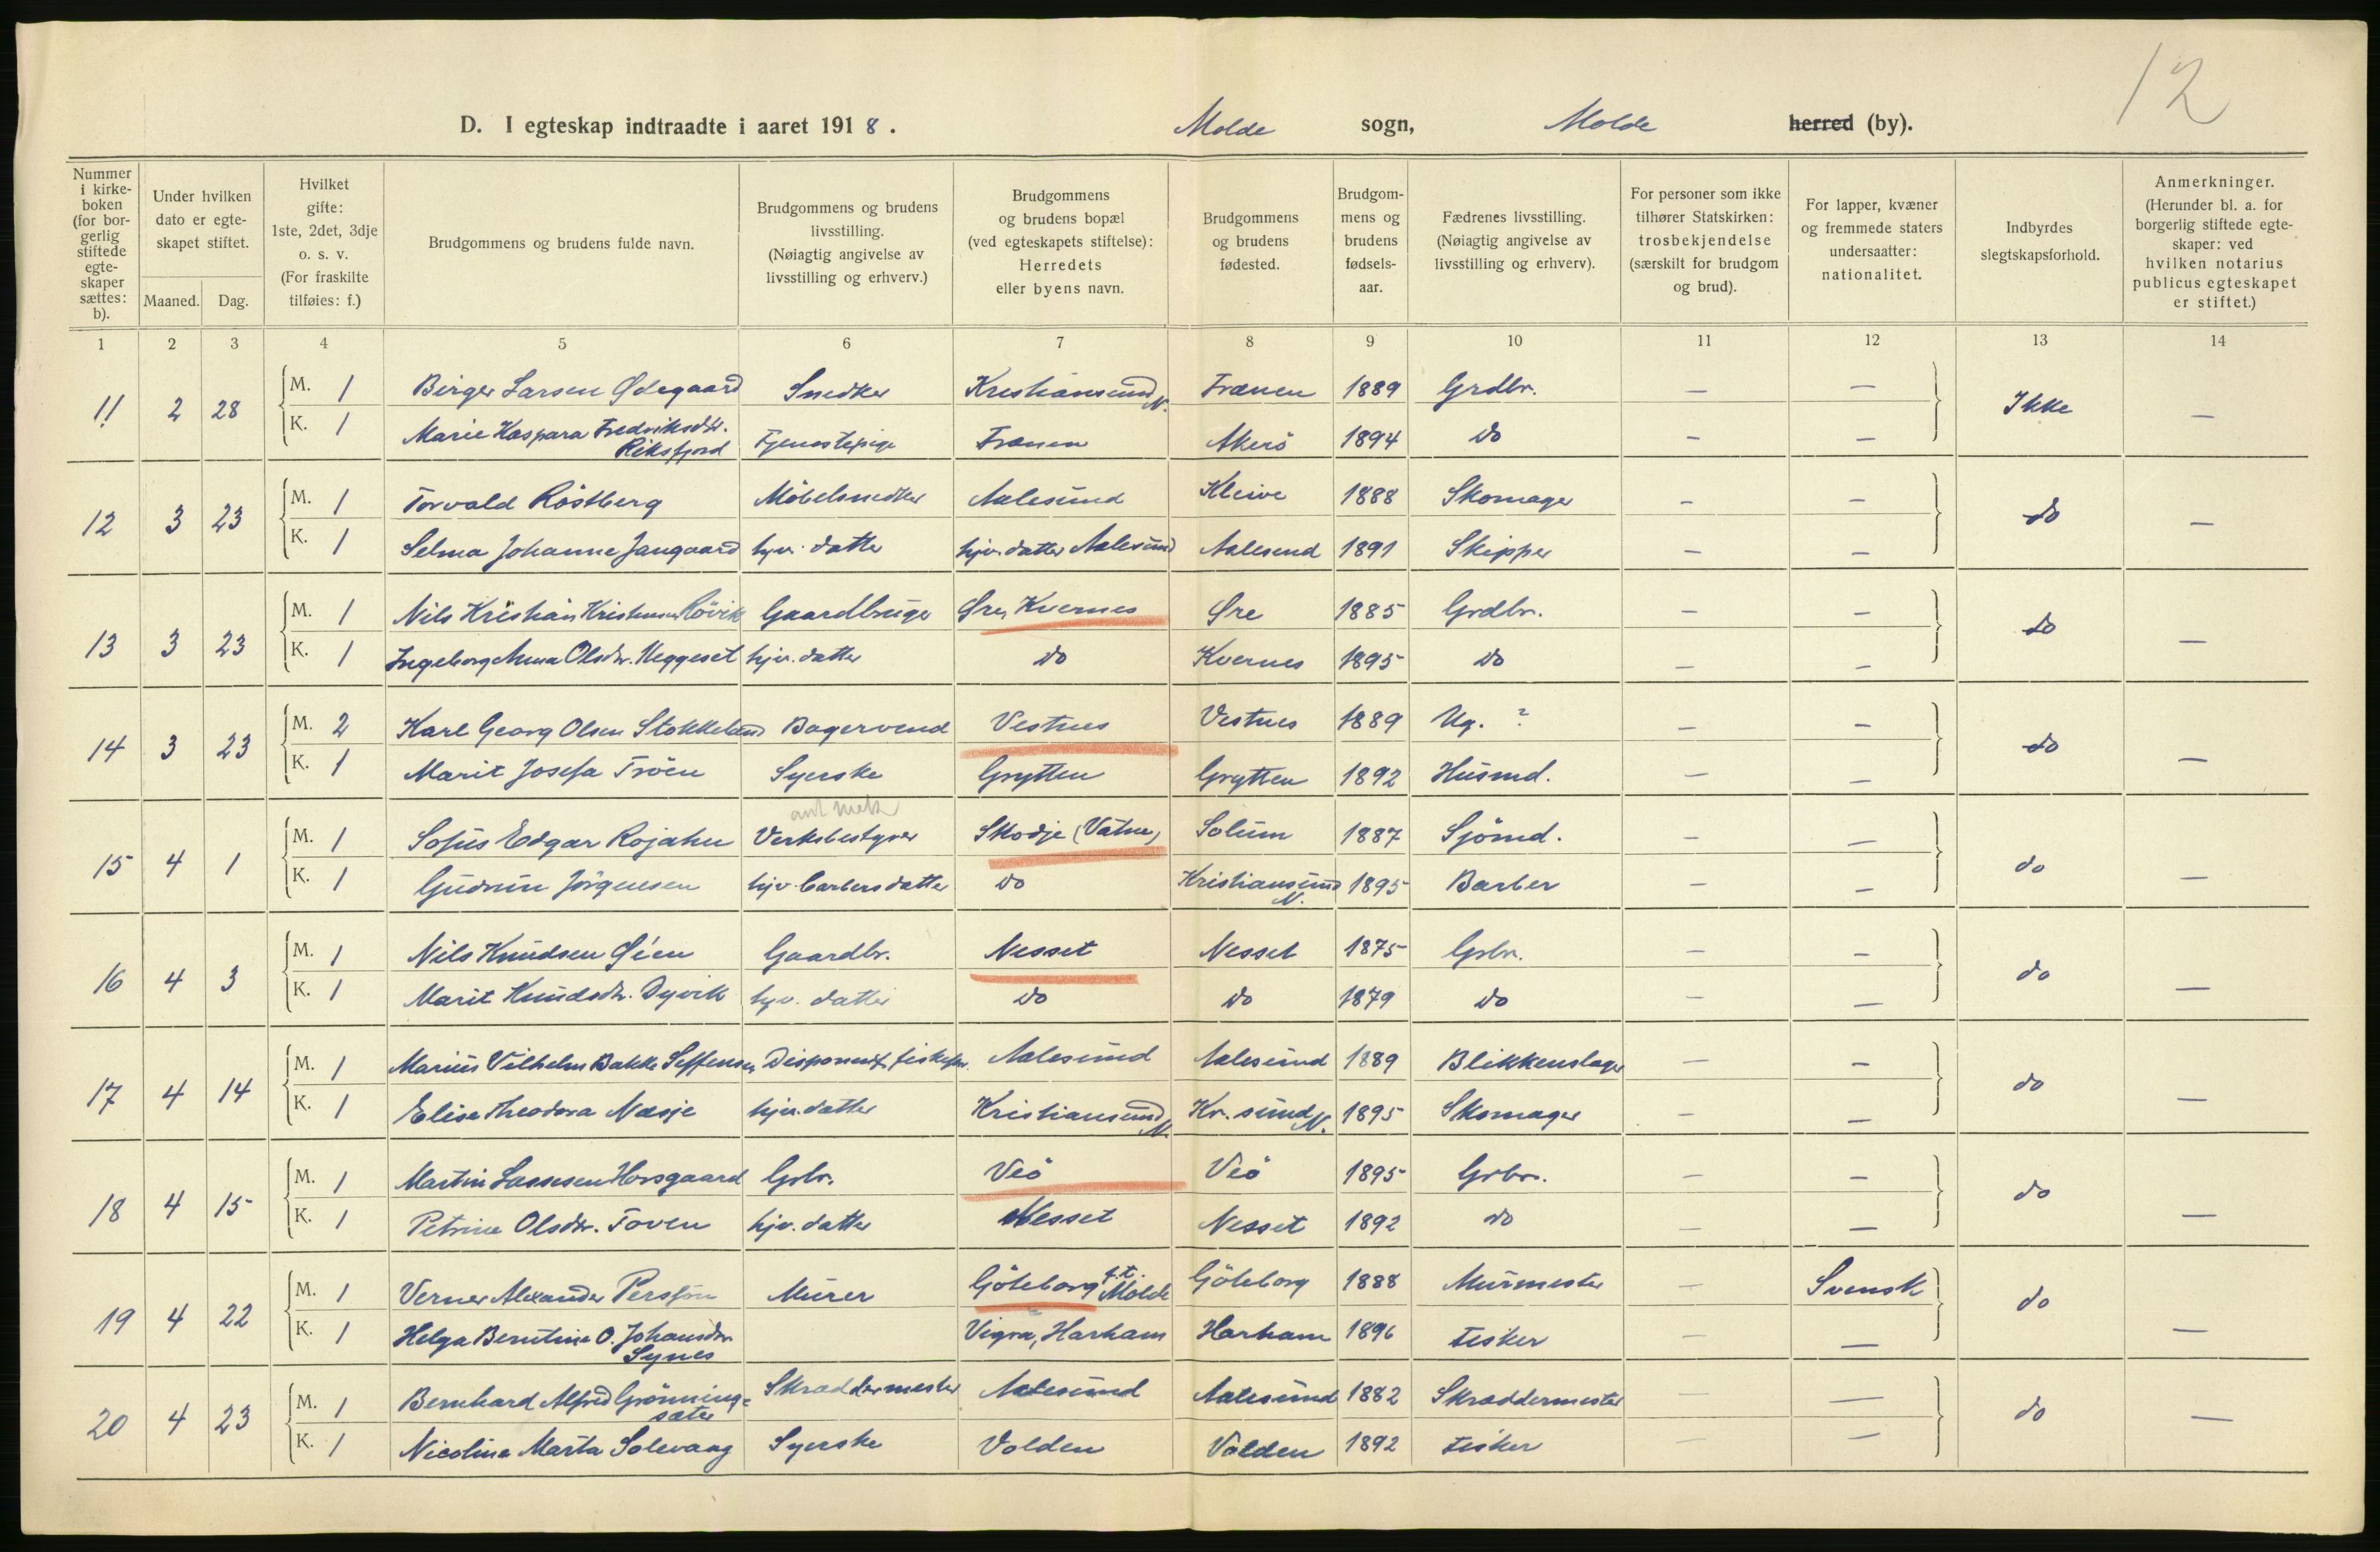 12
D. I egteskap indtraadte i aaret 1918. Molde sogn, Molde herred (by).
Nummer i kirke-boken (for bor-gerlig stiftede egte-skaper sættes: b).
Under hvilken dato er egte-skapet stiftet.
Maaned. Dag.
Hvilket gifte: 1ste, 2det, 3dje o. s. v. (For fraskilte tilføies: f.)
Brudgommens og brudens fulde navn.
Brudgommens og brudens livsstilling. (Nøiagtig angivelse av livsstilling og erhverv.)
Brudgommens og brudens bopæl (ved egteskapets stiftelse): Herredets eller byens navn.
Brudgommens og brudens fødested.
Brudgom-mens og brudens fødsels-aar.
Fædrenes livsstilling. (Nøiagtig angivelse av livsstilling og erhverv).
For personer som ikke tilhører Statskirken: trosbekjendelse (særskilt for brudgom og brud).
For lapper, kvæner og fremmede staters undersaatter: nationalitet.
Indbyrdes slegtskapsforhold.
Anmerkninger. (Herunder bl. a. for borgerlig stiftede egte-skaper: ved hvilken notarius publicus egteskapet er stiftet.)
1 2 3 4 5 6 7 8 9 10 11 12 13 14
11 2 28 M. 1 Birger Larsen Ødegaard Snedker Kristiansund N. Frænen 1889 Grdbr. — — Ikke —
K. 1 Marie Kaspara Fredriksdtr. Riksfjord Tjenestepige Frænen Akerö 1894 do — —
12 3 23 M. 1 Torvald Röstberg Möbelsnedker Aalesund Kleive 1888 Skomager — — do —
K. 1 Selma Johanne Jangaard hjv. datter hjv. datter Aalesund Aalesund 1891 Skipper — —
13 3 23 M. 1 Nils Kristian Kristensen Rövik Gaardbruger Øre, Kvernes Øre 1885 Grdbr. — — do —
K. 1 Ingeborg Anna Olsdtr. Neggeset hjv. datter do Kvernes 1895 do — —
14 3 23 M. 2 Karl Georg Olsen Stokkeland Bagersvend Vestnes Vestnes 1889 Ug. ? — — do —
K. 1 Marit Josefa Tröen Syerske Grytten Grytten 1892 Husmd. — —
15 4 1 M. 1 Sofus Edgar Rojahn Verksbestyrer Skodje (Vatne) Solum 1887 Sjömd. — — do —
K. 1 Gudrun Jörgensen hjv. barbersdatter do Kristiansund N. 1895 Barber — —
16 4 3 M. 1 Nils Knudsen Øien Gaardbr. Nesset Nesset 1875 Grbr. — — do —
K. 1 Marit Knudsdtr. Dyvik hjv. datter do do 1879 do — —
17 4 14 M. 1 Marius Vilhelm Bakke Seffensen Disponent Aalesund Aalesund 1889 Blikkenslager — — do —
K. 1 Elise Theodora Næsje hjv. datter Kristiansund N. Kr. sund N. 1895 Skomager — —
18 4 15 M. 1 Martin Lassesen Horsgaard Grbr. Veö Veö 1895 Grbr. — — do —
K. 1 Petrine Olsdtr. Toven hjv. datter Nesset Nesset 1892 do — —
19 4 22 M. 1 Verner Alexander Persson Murer Göteborg f.t. Molde Göteborg 1888 Murmester — Svensk do —
K. 1 Helga Berntine O. Johansdtr. Synes Vigra, Harham Harham 1896 Fisker — —
20 4 23 M. 1 Bernhard Alfred Grönning-sæter Skræddermester Aalesund Aalesund 1882 Skræddermester — — do —
K. 1 Nicoline Marta Solevaag Syerske Volden Volden 1892 Fisker — —